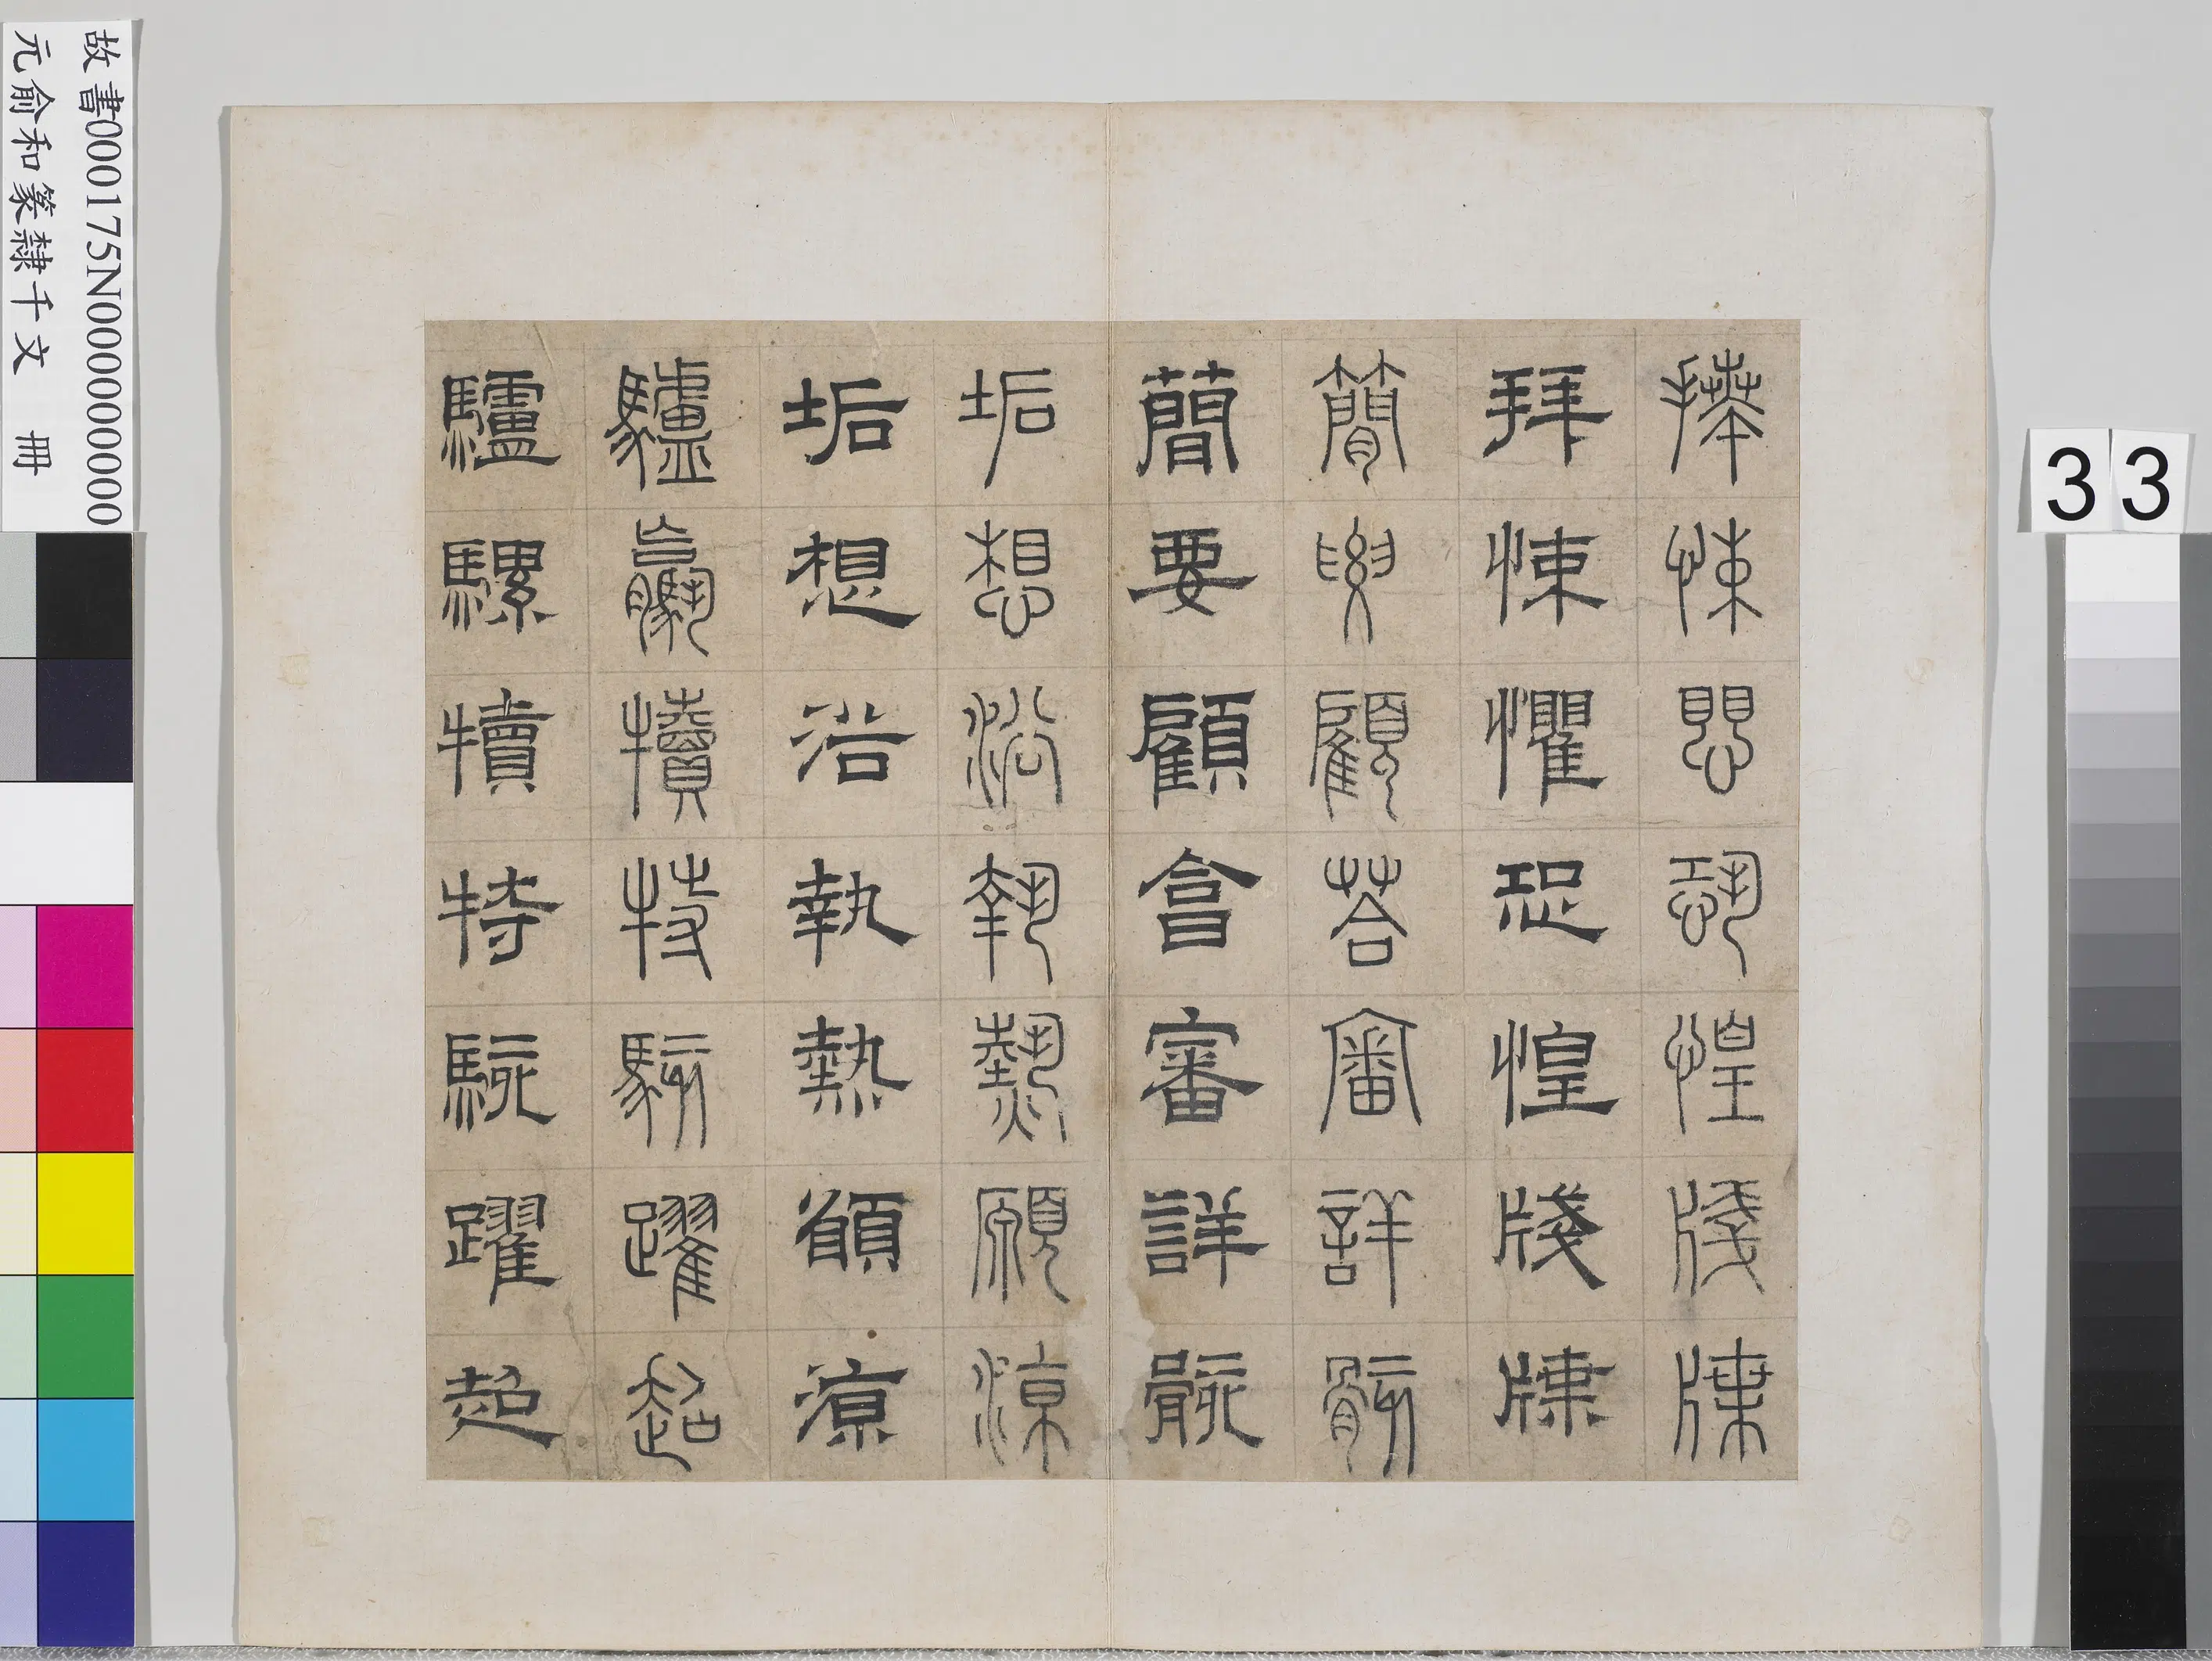 故書000175N000000000
元俞和篆隸千文 冊
33
拜悚懼恐惶牋牒
拜悚懼恐惶牋牒
簡要顧荅審詳骸
簡要顧答審詳骸
垢想浴執熱願涼
垢想浴執熱願涼
驢驘犢特駭躍超
驢騾犢特駭躍超